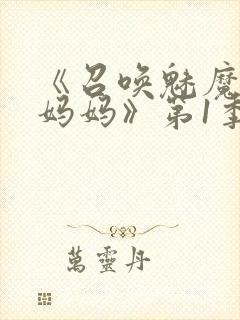 《召唤魅魔
妈妈》第1季
萬靈丹